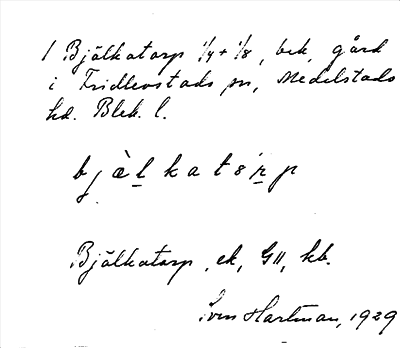 1 Bjälkatorp 1/4 + 1/8, bek. gård
i Fridlevstads sn, Medelstads
hd. Blek. l.
b j ä̀ l̲ k a t ó r̲ p
Bjälkatorp, ek, G11, kb.
Sven Hartman, 1929